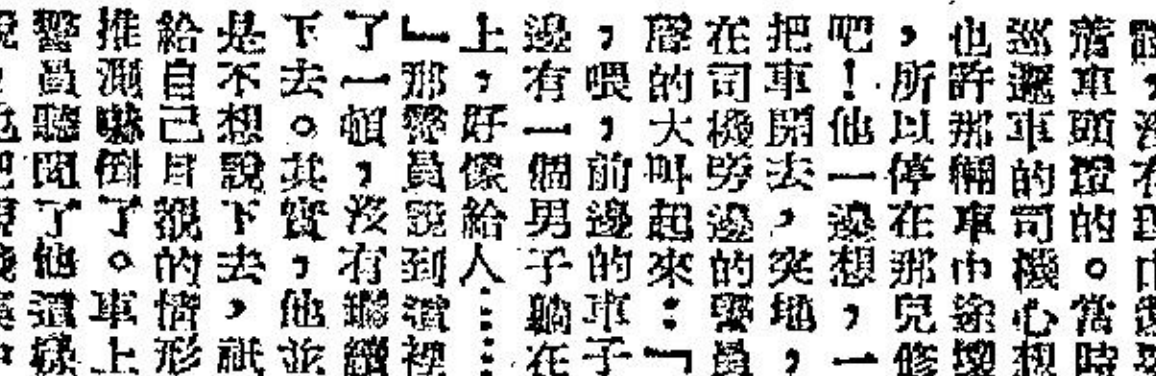 著車頭燈的。當時
巡邏車的司機心想
也許那輛車中途壞
,所以停在那兒修
吧!他一邊想,一
把車開去,突地,
在司機旁邊的警員
聲的大叫起來:「
,喂,前邊的車子
邊有一個男子躺在
上,好像給人……
」那警員說到這裡
了一頓,沒有繼續
下去。其實,他並
是不想說下去,祇
給自己目的情形
推測嚇倒了。車上
警員聽聞了他這樣